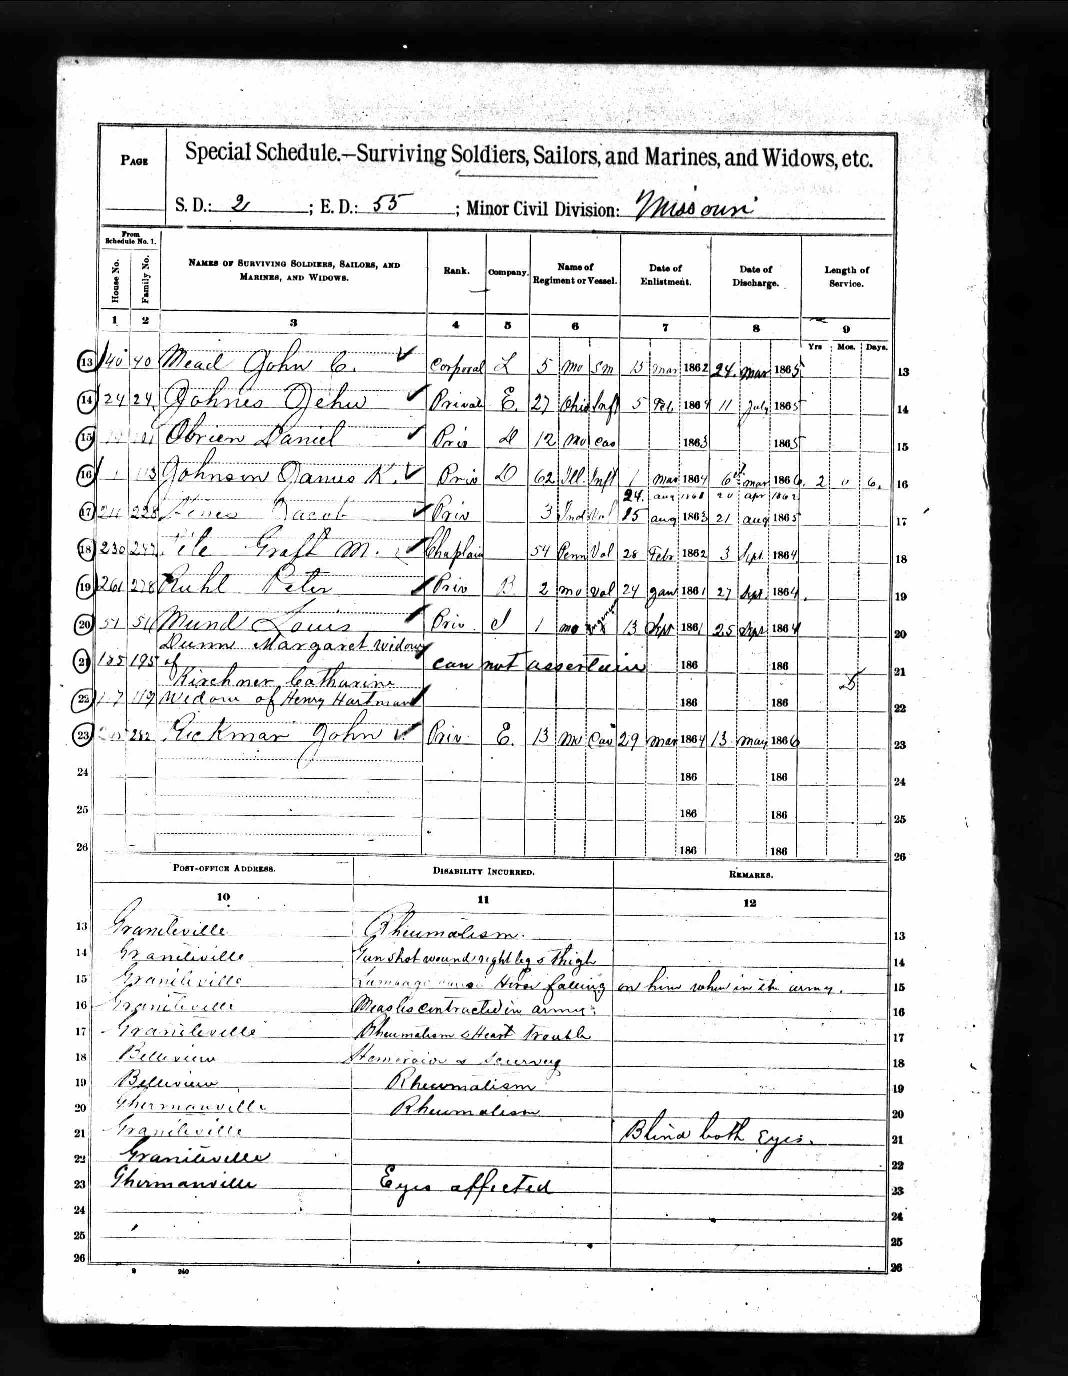 PAGE
Special Schedule.—Surviving Soldiers, Sailors, and Marines, and Widows, etc.
S. D.: 2 ; E. D.: 55 ; Minor Civil Division: Missouri
From Schedule No. 1.
House No. Family No. NAMES OF SURVIVING SOLDIERS, SAILORS, AND MARINES, AND WIDOWS. Rank. Company. Name of Regiment or Vessel. Date of Enlistment. Date of Discharge. Length of Service.
1 2 3 4 5 6 7 8 9
Yrs Mos. Days.
13 40 40 Mead John C. Corporal L 5 Mo S M 13 Mar 1862 24 Mar 1865 13
14 24 24 Johnes Jehu Private E. 27 Ohio Inft 5 Feb 1864 11 July 1865 14
15 Obrien Daniel Priv D 12 Mo Cav 1863 1865 15
16 1 113 Johnson James K. Priv D 62 Ill. Inft 1 Mar 1864 6th Mar 1866. 2 0 6. 16
24. aug 1861 20 apr 1862
17 228 Jacob Priv 3 Ind Vol 15 aug 1863 21 aug 1865 17
18 230 247 Pile Graft M. Chaplain 54 Penn Vol 28 Febr 1862 3 Sept 1864 18
19 261 278 Ruhl Peter Priv B 2 mo Vol 24 Jan 1861 27 Sept 1864. 19
20 51 51 Mund Louis Priv. I 1 mo 13 Sept 1861 25 Sept 1864 20
Dunn Margaret Widow
21 185 195 of can not assertain 186 186 21
Kirchner Catharine
22 119 Widow of Henry Hartman 186 186 22
23 282 Rickman John Priv. E. 13 Mo Cav 29 Mar 1864 13 May 1866 23
24 186 186 24
25 186 186 25
26 186 186 26
POST-OFFICE ADDRESS. DISABILITY INCURRED. REMARKS.
10 11 12
13 Graniteville Rheumatism. 13
14 Graniteville Gunshot wound right leg & thigh 14
15 Graniteville Horse falling on him when in the army. 15
16 Graniteville Measles contracted in army. 16
17 Graniteville Rheumatism & Heart Trouble 17
18 Belleview & Scurvey 18
19 Belleview Rheumatism 19
20 Ghermanville Rheumatism 20
21 Graniteville Blind both Eyes. 21
22 Graniteville 22
23 Ghermanville Eyes affected 23
24 24
25 25
26 26